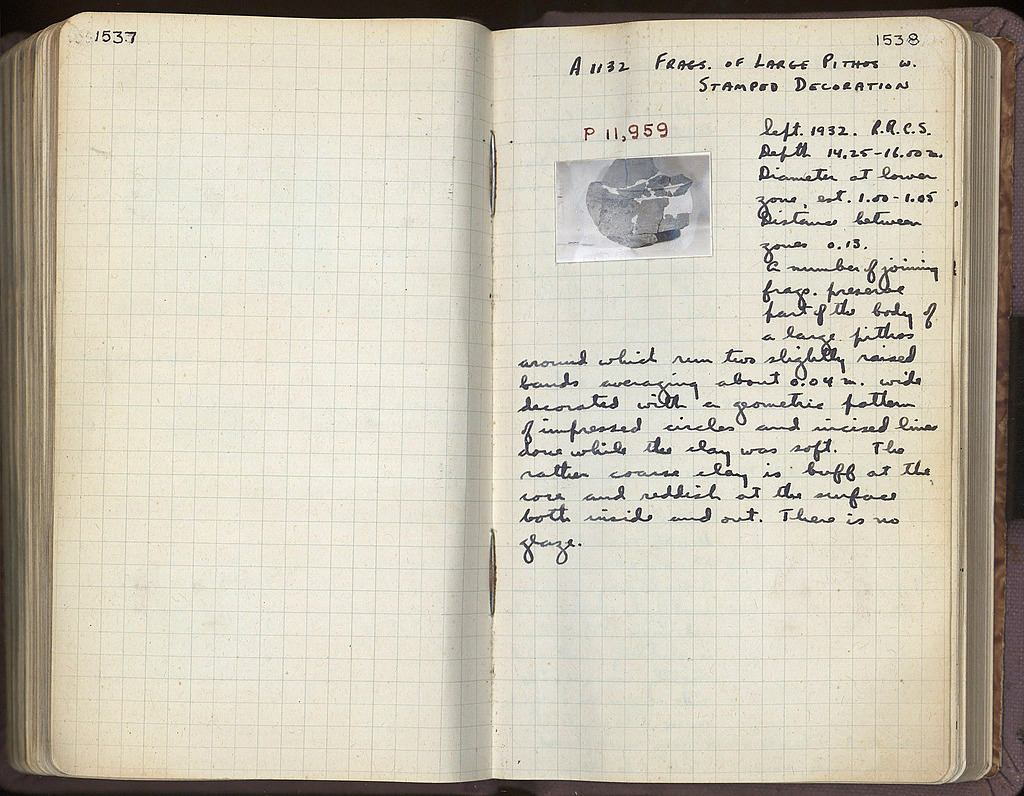 1537
1538
A 1132 FRAGS. OF LARGE PITHOS W.
STAMPED DECORATION
P 11,959
left. 1932. R.R.C.S.
Depth 14.25-16.00 m.
Diameter at lower
zone, est. 1.00-1.05
Distance between
zones 0.13.
A number of joining
frags. preserve
part of the body of
a large pithos
around which run two slightly raised
bands averaging about 0.04 m. wide
decorated with a geometric pattern
of impressed circles and incised lines
done while the clay was soft. The
rather coarse clay is buff at the
core and reddish at the surface
both inside and out. There is no
glaze.